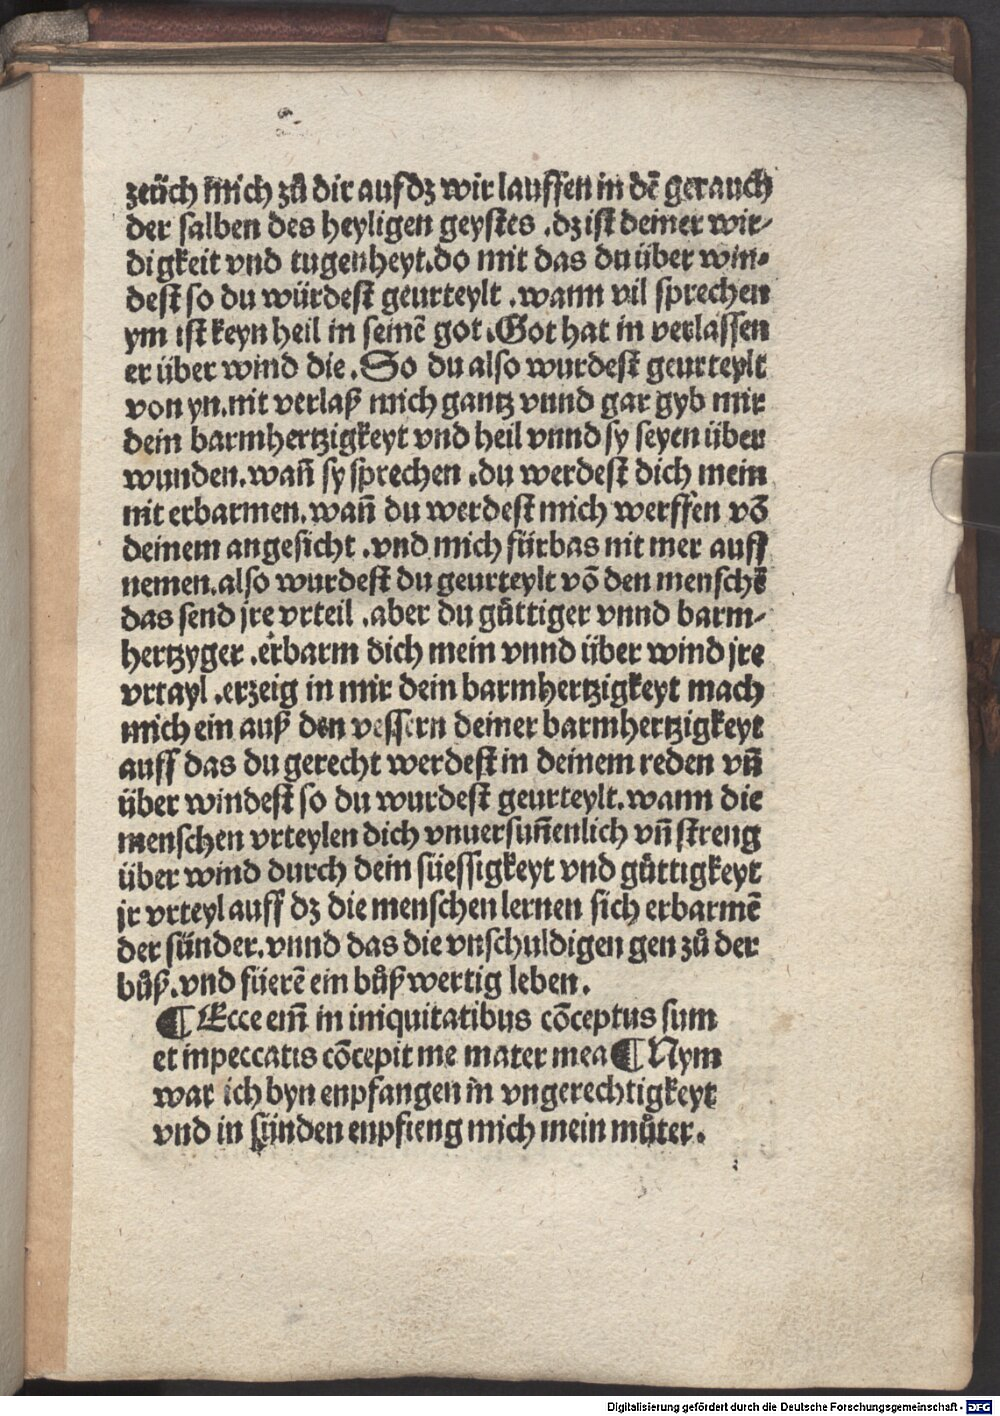 zeüch mich zů dir auf dz wir lauffen in dē gerauch
der salben des heyligen geystes .dz ist deiner wir-
digkeit vnd tugenheyt.do mit das du über win-
dest so du würdest geurteylt .wann vil sprechen
ym ist keyn heil in seinē got .Got hat in verlassen
er über wind die .So du also wurdest geurteylt
von yn.nit verlaß mich gantz vnnd gar gyb mir
dein barmhertzigkeyt vnd heil vnnd sy seyen über
wunden.wañ sy sprechen .du werdest dich mein
nit erbarmen.wañ du werdest mich werffen vō
deinem angesicht .vnd mich fürbas nit mer auff
nemen.also wurdest du geurteylt vō den menschē
das send jre vrteil .aber du gůttiger vnnd barm-
hertzyger .erbarm dich mein vnnd über wind jre
vrtayl .erzeig in mir dein barmhertzigkeyt mach
mich ein auß den vessern deiner barmhertzigkeyt
auff das du gerecht werdest in deinem reden vñ
über windest so du wurdest geurteylt.wann die
menschen vrteylen dich vnuersuñenlich vñ streng
über wind durch dein süessigkeyt vnd gůttigkeyt
jr vrteyl auff dz die menschen lernen sich erbarmē
der sünder.vnnd das die vnschuldigen gen zů der
bůß.vnd füerē ein bůßwertig leben.
¶ Ecce em̄ in iniquitatibus cōceptus sum
et inpeccatis cōcepit me mater mea ¶ Nym
war ich byn enpfangen in vngerechtigkeyt
vnd in sünden enpfieng mich mein můter.
Digitalisierung gefördert durch die Deutsche Forschungsgemeinschaft - DFG